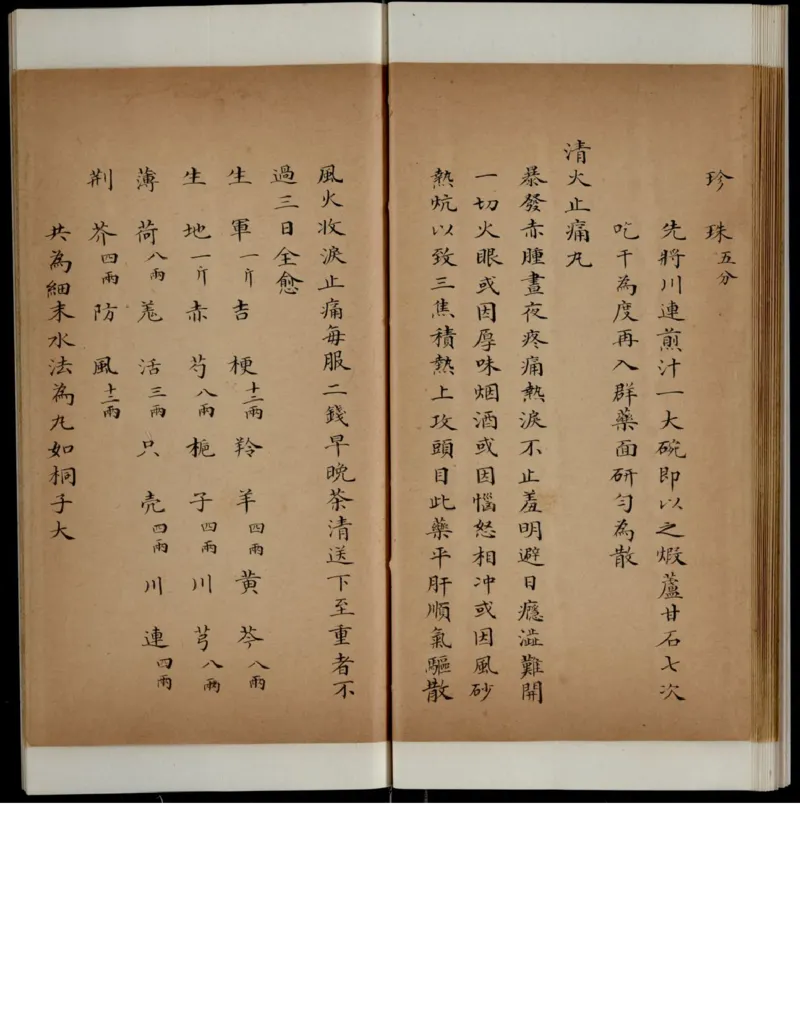 珍珠五分
先將川連煎汁一大碗即以之煅蘆甘石七次
吃干為度再入群藥面研勻為散
清火止痛丸
暴發赤腫晝夜疼痛熱淚不止羞明避日癮澁難開
一切火眼或因厚味烟酒或因惱怒相冲或因風砂
熱炕以致三焦積熱上攻頭目此藥平肝順氣驅散
風火收淚止痛每服二錢早晚茶清送下至重者不
過三日全愈
生軍一斤吉梗十二兩羚羊四兩黄芩八兩
生地一斤赤芍八兩梔子四兩川芎八兩
薄荷八兩羗活三兩只壳四兩川連四兩
荆芥四兩防風十二兩
共為細末水法為丸如桐子大